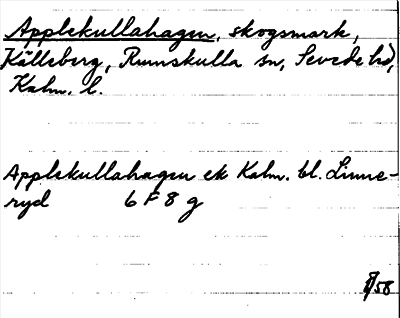 Applekullahagen, skogsmark,
Källeberg, Rumskulla sn, Sevede hd,
Kalm. l.
Applekullahagen ek Kalm. bl. Linne-
ryd 6 F 8 g
58